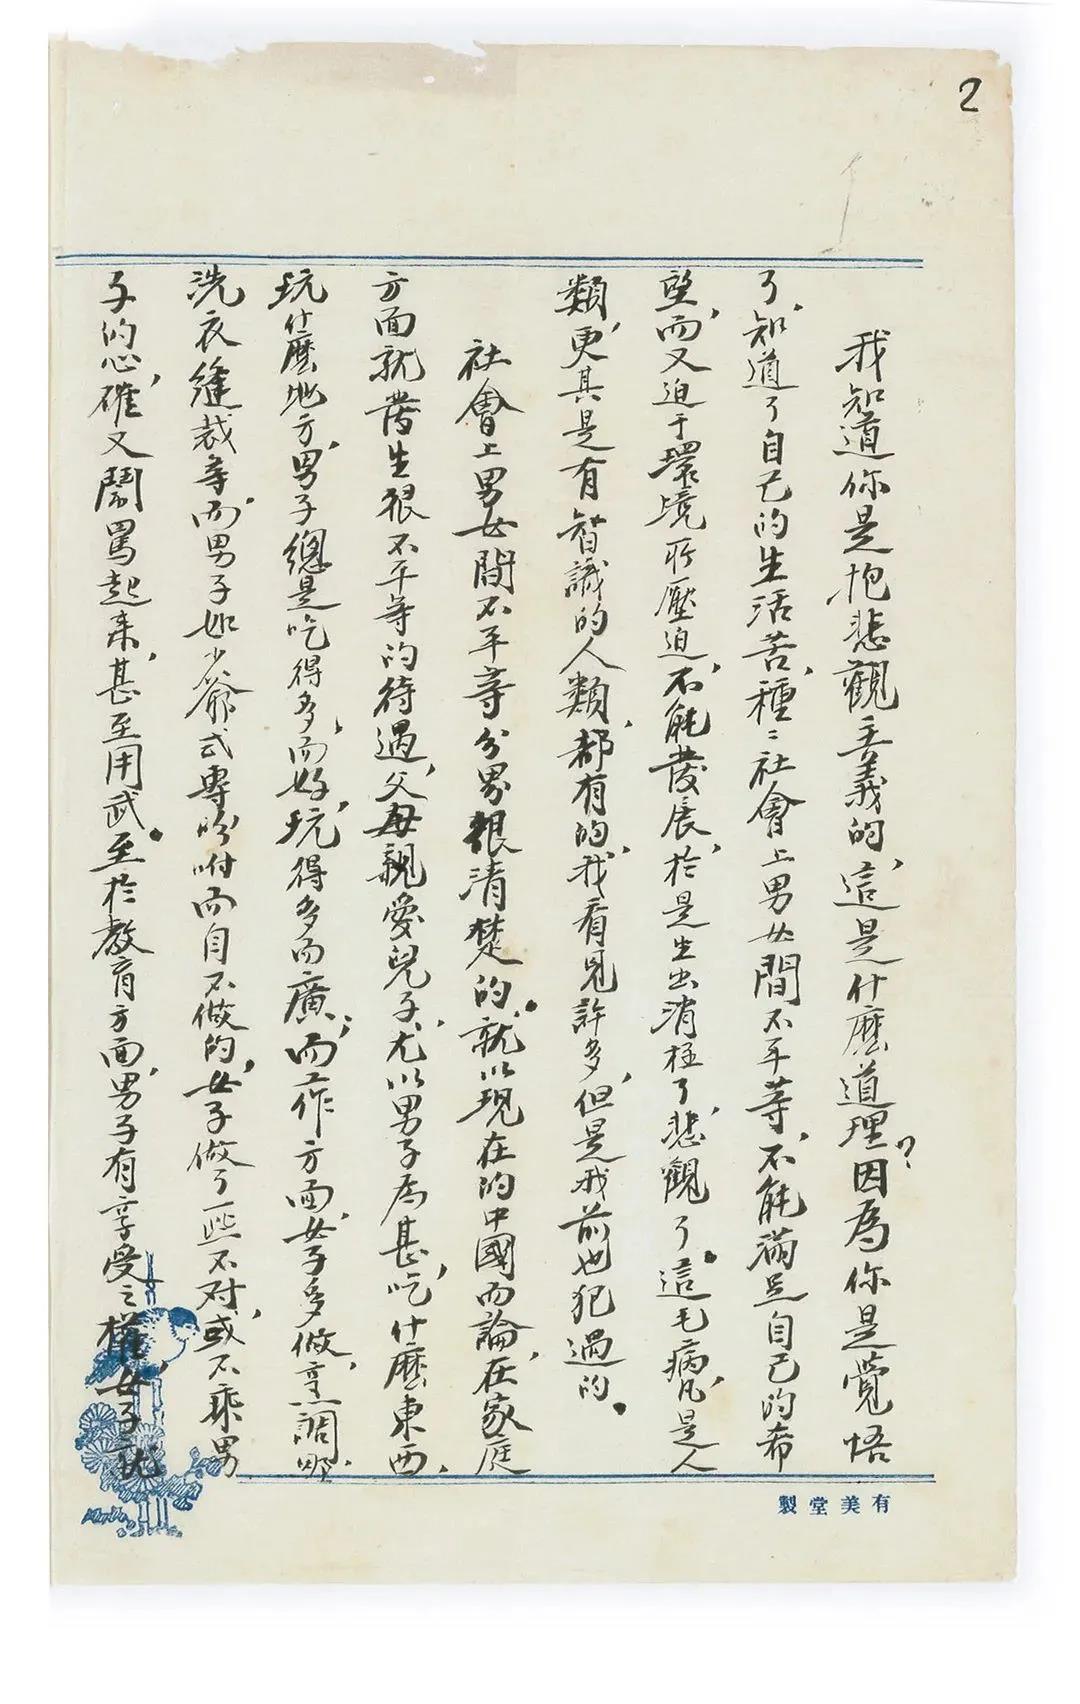 2
我知道你是抱悲觀主義的，這是什麼道理？因為你是覺悟
了，知道了自己的生活苦，種〻社會上男女間不平等，不能滿足自己的希
望，而又迫于環境所壓迫，不能發展，於是生出消極了，悲觀了。這毛病，凡是人
類，更其是有智識的人類，都有的，我看見許多，但是我前也犯過的。
社會上男女間不平等分界很清楚的。就以現在的中國而論，在家庭
方面就發生很不平等的待遇，父母親愛兒子，尤以男子為甚，吃什麼東西，
玩什麼地方，男子總是吃得多，而好，玩得多而廣，而工作方面，女子多做烹調
洗衣縫裁等，而男子如少爺式專吩咐而自不做的，女子做了一些不对，或不乘男
子的心，確又鬧罵起来，甚至用武。至於教育方面，男子有享受之權，女子就
有美堂製